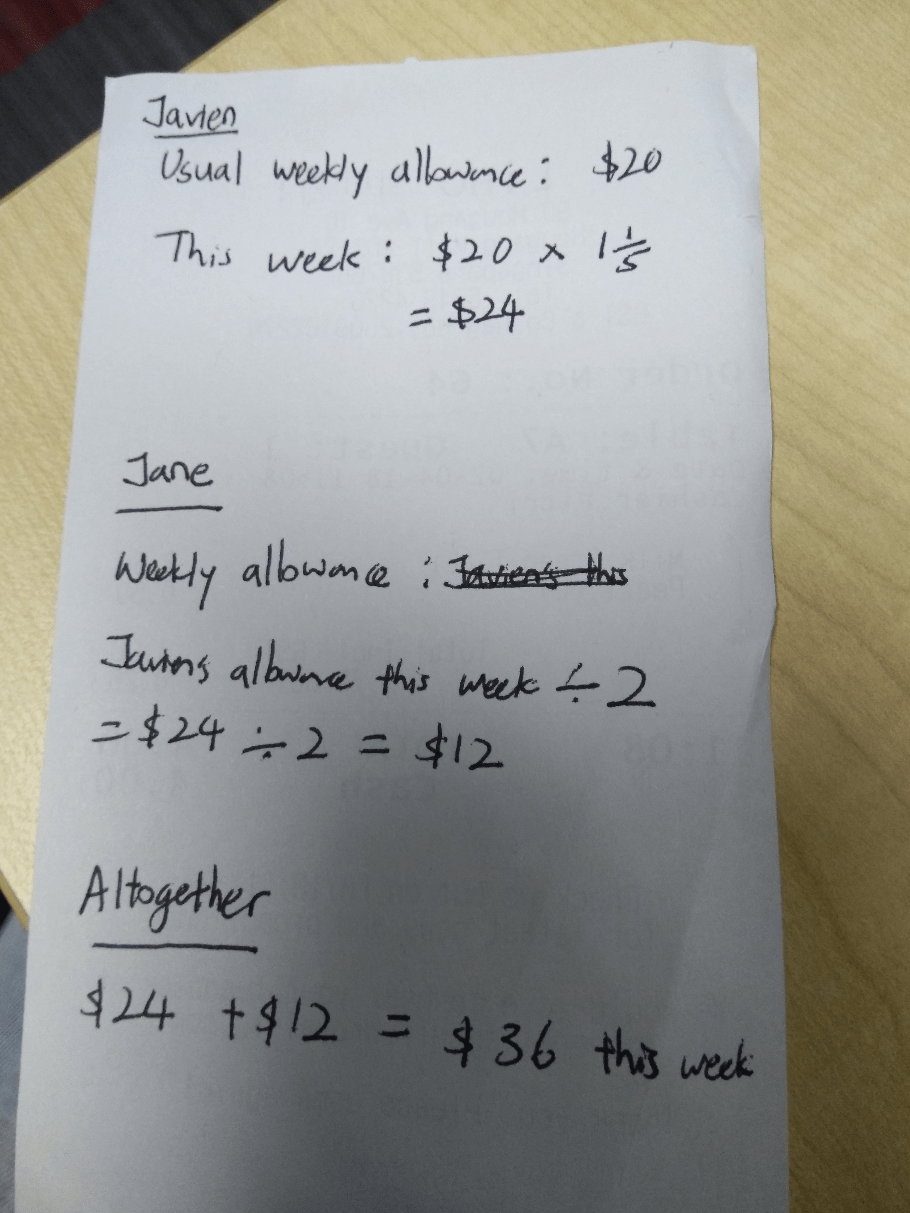 Javien
Usual weekly allowance : $20
This week : $20 x 1 1/5
= $24
Jane
Weekly allowance : Javien's this
Javiens allowance this week ÷ 2
= $24 ÷ 2 = $12
Altogether
$24 + $12 = $36 this week